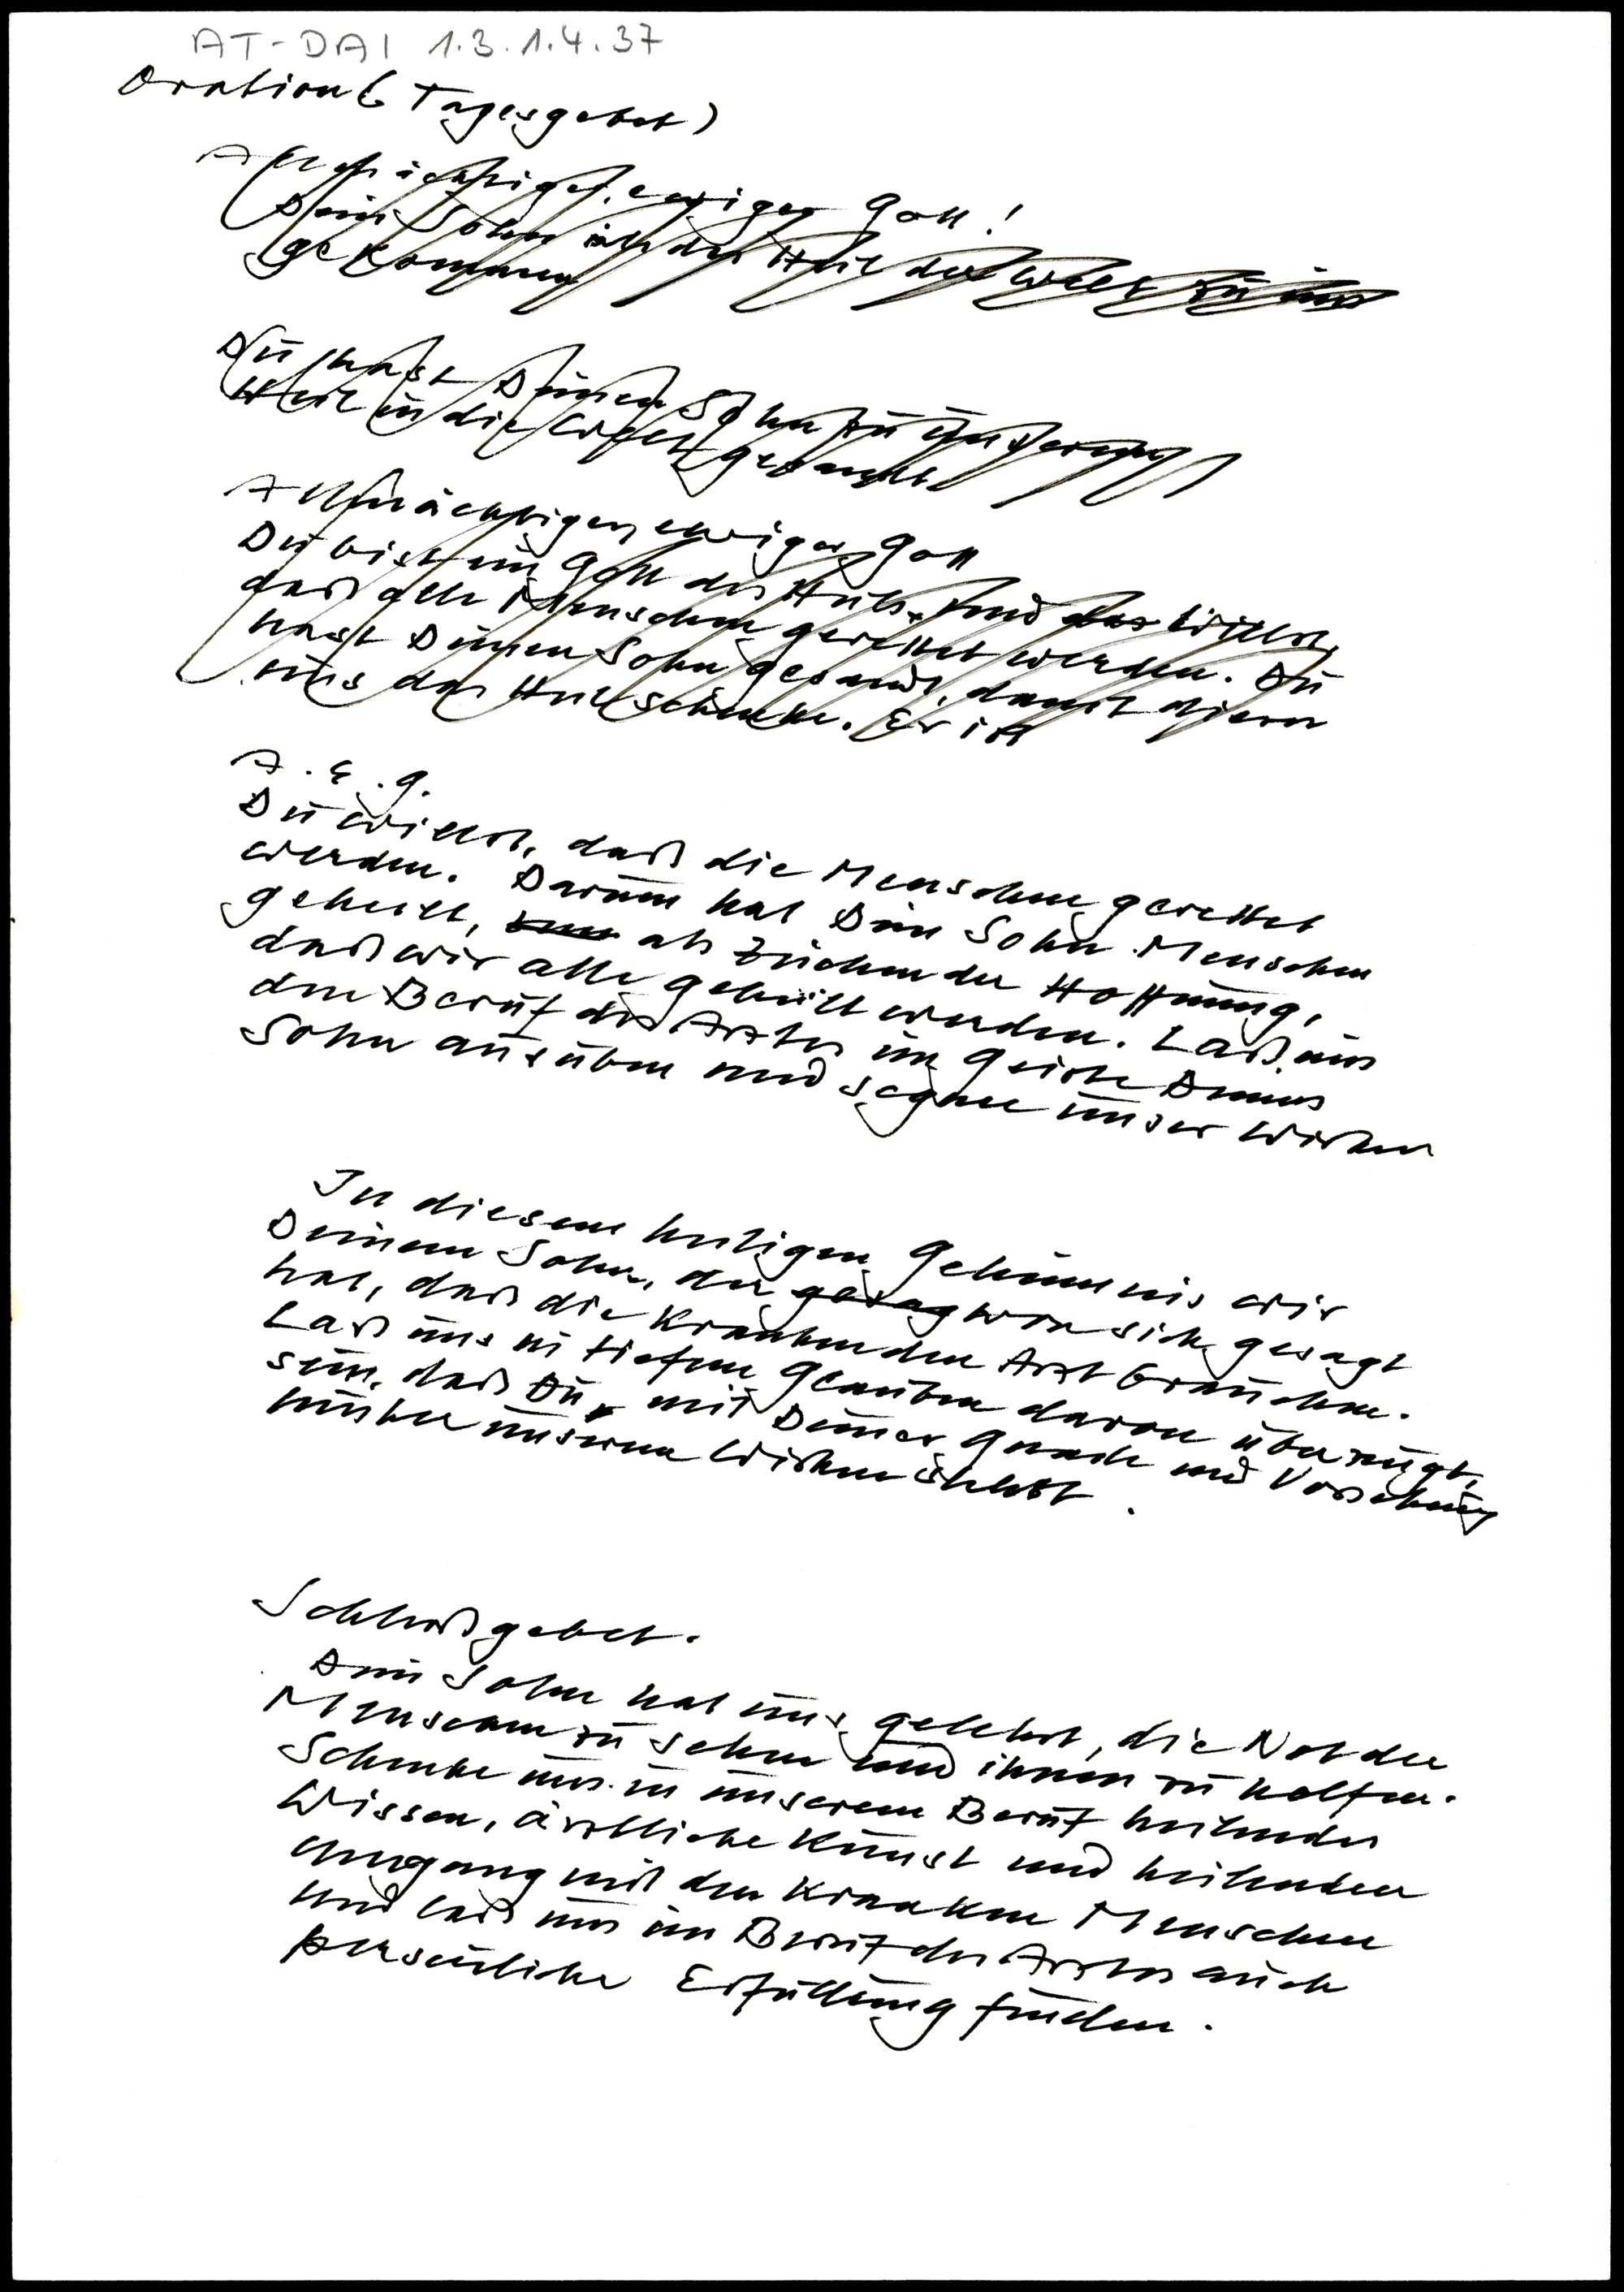 AT-DAI 1.3.1.4.37
Oration (Tagesgebet)
Allmächtiger, ewiger Gott!
Dein Sohn ist das Heil der Welt zu uns
gekommen
Du hast Deinen Sohn zu unserem
Heil in die Welt gesandt
Allmächtiger, ewiger Gott
Du bist ein Gott des Heils und das willst,
daß alle Menschen gerettet werden. Du
hast Deinen Sohn gesandt, damit dieser
uns das Heil schenke. Er ist
A. E. G.
Du willst, daß die Menschen gerettet
werden. Darum hat Dein Sohn Menschen
geheilt, als Zeichen der Hoffnung,
daß wir alle geheilt werden. Laß uns
den Beruf des Arztes im Geiste Deines
Sohn ausüben und segne unser Wirken
In diesem heiligen Geheimnis wir
Deinem Sohn, der gesag von sich gesagt
hat, daß die Kranken den Arzt brauchen.
Laß uns in tiefem Glauben davon überzeugt,
sein, daß Du mit Deiner Gnade und Vorsehung
hinter unserem Wirken stehst.
Schlußgebet.
Dein Sohn hat uns gelehrt, die Not der
Menschen zu sehen und ihnen zu helfen.
Schenke uns in unserem Beruf heilendes
Wissen, ärztliche Kunst und heilenden
Umgang mit den Kranken Menschen
und laß uns im Beruf des Arztes auch
persönliche Erfüllung finden.